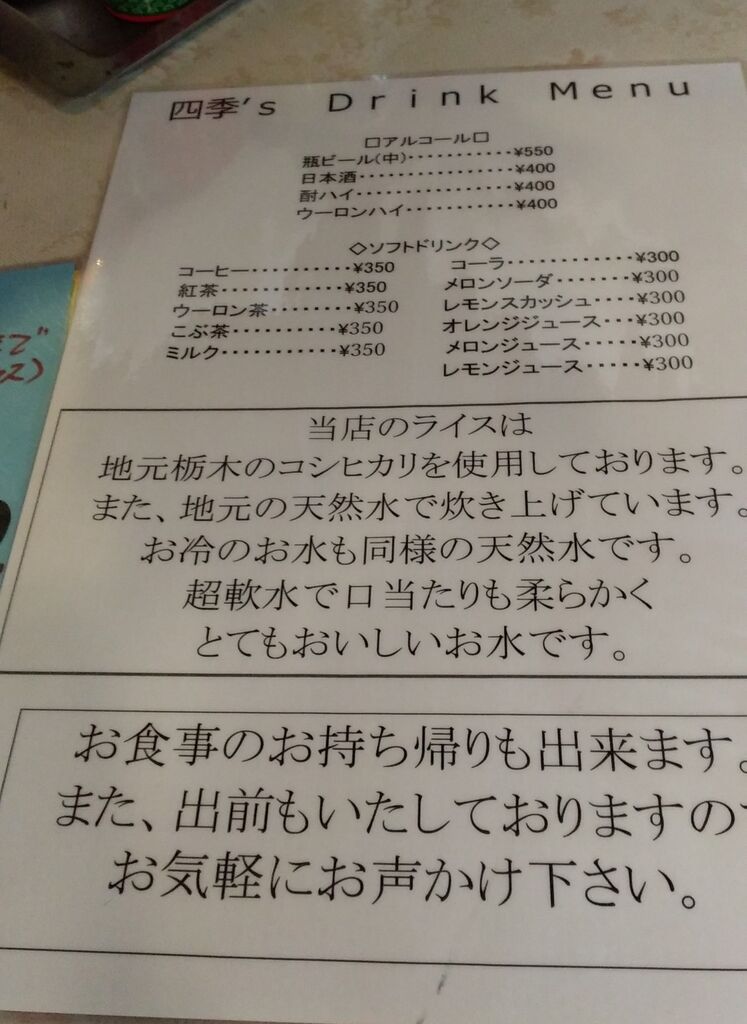 四季's Drink Menu
□アルコール□
瓶ビール(中)···········¥550
日本酒················¥400
酎ハイ················¥400
ウーロンハイ···········¥400
◇ソフトドリンク◇
コーヒー··········¥350
紅茶··············¥350
ウーロン茶········¥350
こぶ茶············¥350
ミルク············¥350
コーラ············¥300
メロンソーダ·······¥300
レモンスカッシュ····¥300
オレンジジュース···¥300
メロンジュース·····¥300
レモンジュース·····¥300
当店のライスは
地元栃木のコシヒカリを使用しております。
また、地元の天然水で炊き上げています。
お冷のお水も同様の天然水です。
超軟水で口当たりも柔らかく
とてもおいしいお水です。
お食事のお持ち帰りも出来ます。
また、出前もいたしておりますの
お気軽にお声かけ下さい。